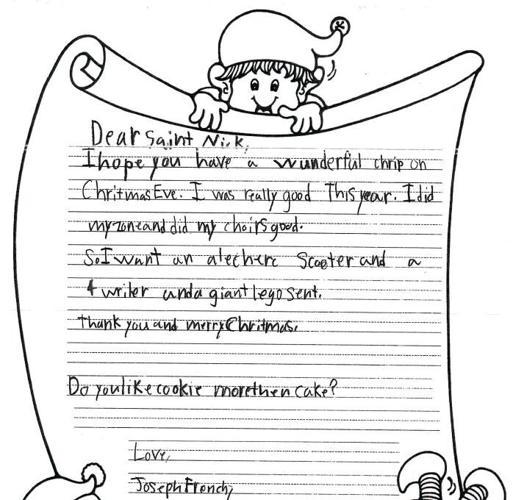 Dear Saint Nick,
I hope you have a wunderful chrip on
Chritmas Eve. I was really good This year. I did
my zone and did my choirs good.
So I want an alecherc Scooter and a
4 wriler and a giant lego sent.
Thank you and merry Chritmas.
Do you like cookie more then cake?
Love,
Joseph French,